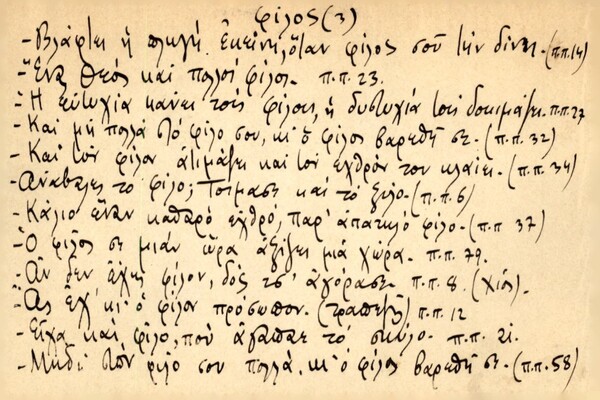 φίλος (3)
- Βλάφτει ἡ πληγὴ ἐκείνη, ὅταν φίλος σοῦ τὴν δίνει. (π.π. 14)
- Ἕνας θεὸς καὶ πολλοὶ φίλοι. π.π. 23.
- Ἡ εὐτυχία κάνει τοὺς φίλους, ἡ δυστυχία τοὺς δοκιμάζει. π.π. 27
- Καὶ μὴ πολλὰ στὸ φίλο σου, κι' ὁ φίλος βαρεθῆ σε. (π.π. 32)
- Καὶ τὸν φίλον ἀτιμάζει καὶ τὸν ἐχθρὸν του κλαίει. (π.π. 34)
- Ἀνάβαλες τὸ φίλο; Τοίμασε καὶ τὸ ξύλο. (π.π. 6)
- Κάλιο ἕναν καθαρὸ ἐχθρό, παρ' ἀπατηλὸ φίλο. (π.π. 37)
- Ὁ φίλος σε μιὰν ὥρα ἀξίζει μιὰ χώρα. π.π. 79.
- Ἂν δὲν ἔχῃς φίλον, δὸς τσ' ἀγόρασε. π.π. 8. (Χίος).
- Ἂς ἔχ' κι' ὁ φίλον πρόσωπον. (τραπεζ) π.π. 12
- Εἶχα καὶ φίλο, ποὺ ἀγάπαε τὸ σκύλο. π.π. 21.
- Μηδὲ στὸν φίλο σου πολλὰ, κι' ὁ φίλος βαρεθῆ σε. (π.π. 58)